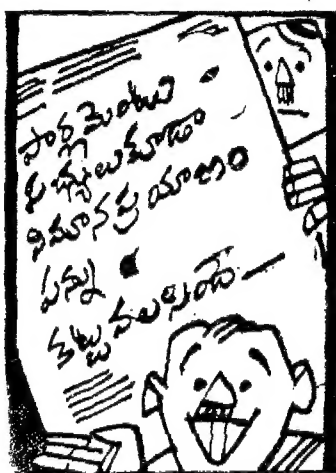 పార్లమెంటు
సభ్యులుకూడా
విమానప్రయాణం
పన్ను
కట్టవలసిందే —